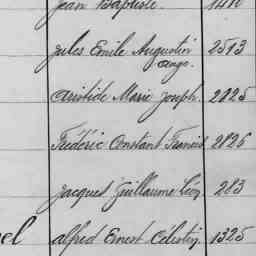 Jean Baptiste.
Jules Emile Augustin 2513
ango.
Aristide Marie Joseph. 2225
Frédéric Constant Francis 2826
Jacques Guillaume Léon 283
el Alfred Ernest Célestin 1325